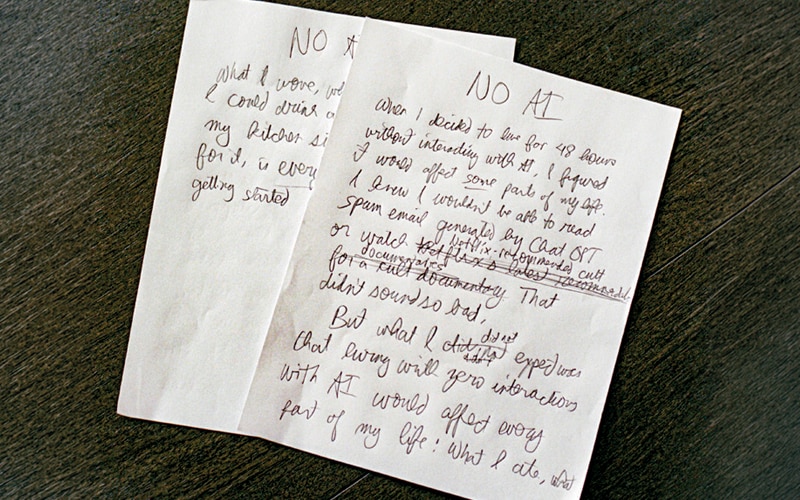 NO A
What I wore, we
I could drink
my kitchen si
for it, is every
getting started
NO AI
When I decided to live for 48 hours
without interacting with AI, I figured
it would affect some parts of my life.
I knew I wouldn't be able to read
spam email generated by Chat GPT
or watch Netflix-recommended cult
documentaries
for a cult documentary That
didn't sound so bad,
But what I did not expect was
that living with zero interactions
with AI would affect every
part of my life: What I ate, what